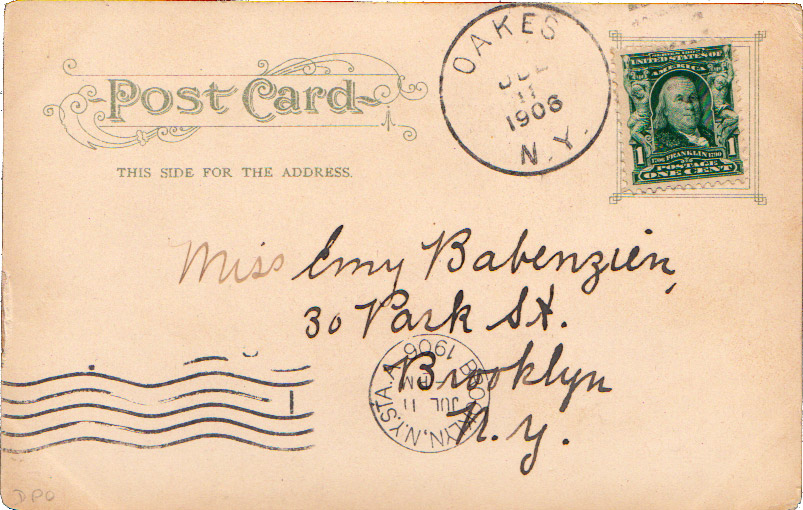 Post Card
THIS SIDE FOR THE ADDRESS.
OAKES
JUL
11
1906
N.Y.
UNITED STATES OF
AMERICA
1 1
1706 FRANKLIN 1790
POSTAGE
ONE CENT
Miss Emy Babenzien,
30 Park St.
Brooklyn
N.Y.
BROOKLYN, N.Y. STA. A.
JUL 11
1906
DPO